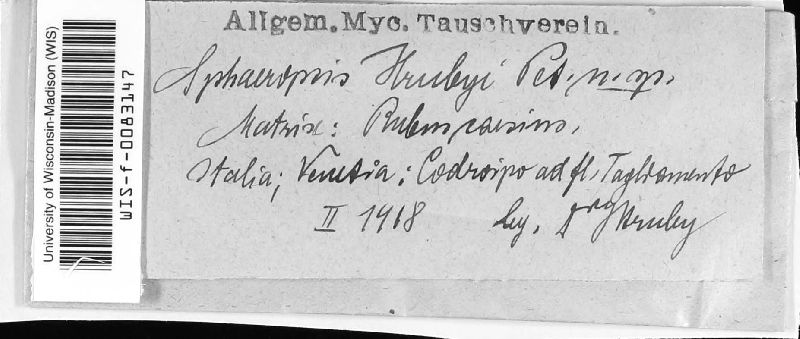 University of Wisconsin-Madison (WIS)
WIS-f-0083147
Allgem. Myc. Tauschverein.
Sphaeropsis Hrubyi Pet. n. sp.
Matrix: Rubus caesius.
Italia; Venetia: Codroipo ad fl. Tagliamento
II 1918 leg. Dr. Hruby